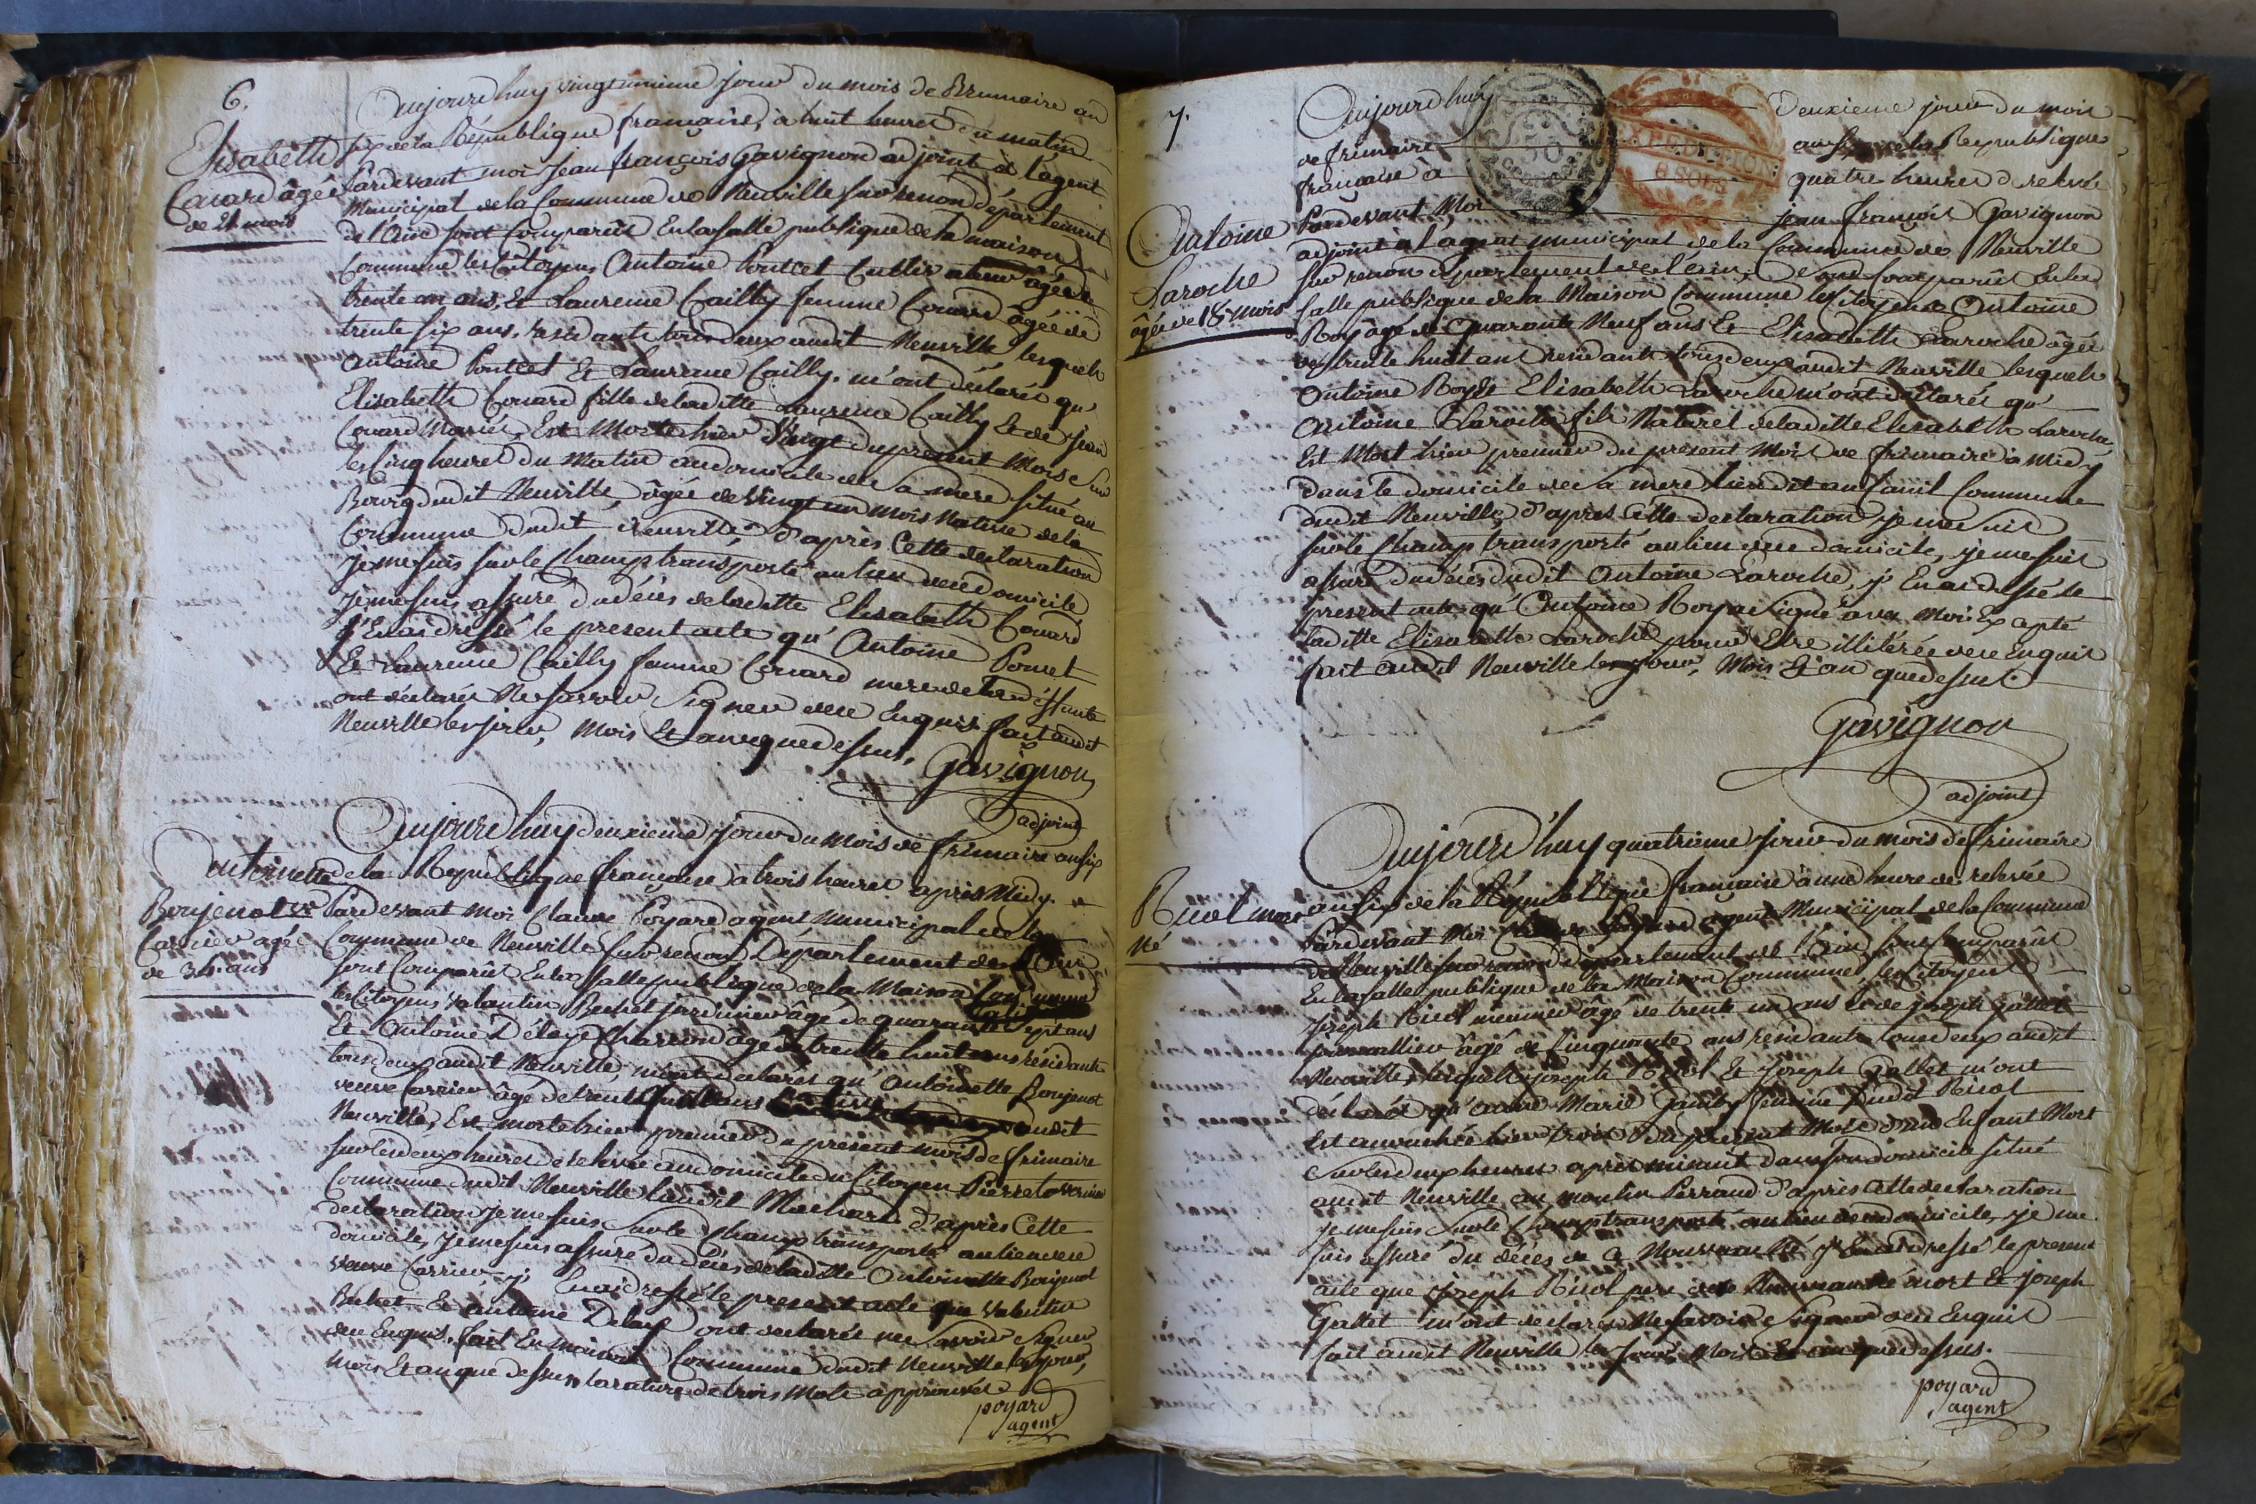 6.
Aujourd'huy vingtunieme jour du mois de Brumaire an
six de la République française, à huit heures du matin
Elisabeth
Couard âgée
de 21 mois
Pardevant moi Jean françois Gavignon adjoint à l'agent
Municipal de la Commune de Neuville sur renon département
de l'Ain sont Comparût En la salle publique de la maison
Commune les Citoyens Antoine Poncet Cultivateur âgé de
trente un ans, Et Laurence Cailly femme Couard âgée de
trente six ans, residants tous deux audit Neuville lesquels
Antoine Poncet Et Laurence Cailly. m'ont déclarés qu'
Elisabeth Couard fille de laditte Laurence Cailly Et de Jean
Couard Mariés, Est Morte hier Vingt du present Mois sur
les Cinq heures du Matin au domicile de sa mere situé au
Bourg dudit Neuville, âgée de Vingt un mois Native de la
Commune dudit Neuville, d'après Cette declaration
Je me suis sur le Champ transporté au lieu de ce domicile
Je me suis assuré du décés de laditte Elisabeth Couard
J'En ai dressé le present acte qu' Antoine Poncet
Et Laurence Cailly femme Couard mere de la déffunte
ont déclarés Ne savoir Signer de ce Enquis fait audit
Neuville les jour, Mois Et an que dessus,
Gavignon
adjoint
Aujourd'huy deuxieme jour du Mois de frimaire an six
Antoinette
Boujenot Ve
Carrier agé
de 34. ans
de la République française a trois heures après Midy.
Pardevant moi Claude Poyard agent Municipal de la
Commune de Neuville sur renon Departement de l'Ain
sont Comparût En la salle publique de la Maison Commune
les Citoyens Valentin Bechet jardinier âgé de quarante sept ans
Et Antoine Delaye Charron âgé de trente huit ans residants
tous deux audit Neuville, m'ont declarés qu' Antoinette Boujenot
veuve Carrier âgé de trente quatre ans audit
Neuville, Est morte hier premier du présent mois de frimaire
sur les deux heures de relevée au domicile du Citoyen Pierre
Commune dudit Neuville d'après Cette
declaration Je me suis sur le Champ transporté au lieu de ce
domicile, je me suis assuré du décés de laditte Antoinette Boujenot
veuve Carrier j'En ai dressé le present acte que Valentin
Bechet Et Antoine Delaye ont declarés ne savoir Signer
de ce Enquis, fait En maison Commune dudit Neuville les jour,
Mois Et an que dessus la rature de trois Mots approuvée
poyard
agent
7.
Aujourd'huy deuxieme jour du mois
de frimaire an six de la Republique
française à quatre heures de relevée
Antoine
Laroche
âgé de 18 mois
Pardevant Moi jean françois Gavignon
adjoint à l'agent municipal de la Commune de Neuville
sur renon departement de l'ain, sont Comparût En la
salle publique de la Maison Commune les Citoyens Antoine
Roy âgé de Quarante Neuf ans Et Elisabeth Laroche âgée
de trente huit ans residants tous deux audit Neuville lesquels
Antoine Roy Et Elisabeth Laroche m'ont déclarés qu'
Antoine Laroche fils Naturel de laditte Elisabeth Laroche
Est Mort hier premier du present Mois de frimaire à Midy
dans le domicile de sa mere Commune
dudit Neuville, d'après Cette declaration, je me suis
sur le Champ transporté au lieu de ce domicile, je me suis
assuré du décés dudit Antoine Laroche, j'En ai dressé le
present acte qu' Antoine Roy a signé avec Moi Excepté
laditte Elisabeth Laroche pour Etre illitérée de ce Enquis
fait audit Neuville les jour, Mois Et an que dessus.
Gavignon
adjoint
Aujourd'huy quatrieme jour du mois de frimaire
Risol mort
Né
an six de la République française à une heure de relevée
Pardevant Moi Claude Poyard agent Municipal de la Commune
de Neuville sur renon departement de l'Ain, sont Comparût
En la salle publique de la Maison Commune les Citoyens
Joseph Risol meunier âgé de trente un ans Et de Joseph Gallet
âgé de Cinquante ans residants tous deux audit
Neuville, lesquels Joseph Risol Et Joseph Gallet m'ont
déclarés qu' Marie femme dudit Risol
Est accouchée hier trois du present Mois d'un Enfant Mort
sur les deux heures après minuit dans son domicile situé
audit Neuville au moulin Perraud d'après Cette declaration
je me suis sur le Champ transporté au lieu de ce domicile, je me
suis assuré du décés de Ce Nouveau Né j'En ai dressé le present
acte que Joseph Risol pere de ce Nouveau né mort Et joseph
Gallet m'ont declarés Ne savoir Signer de ce Enquis
fait audit Neuville les jour, Mois Et an que dessus.
poyard
agent
EXPEDITION
6 SOLS